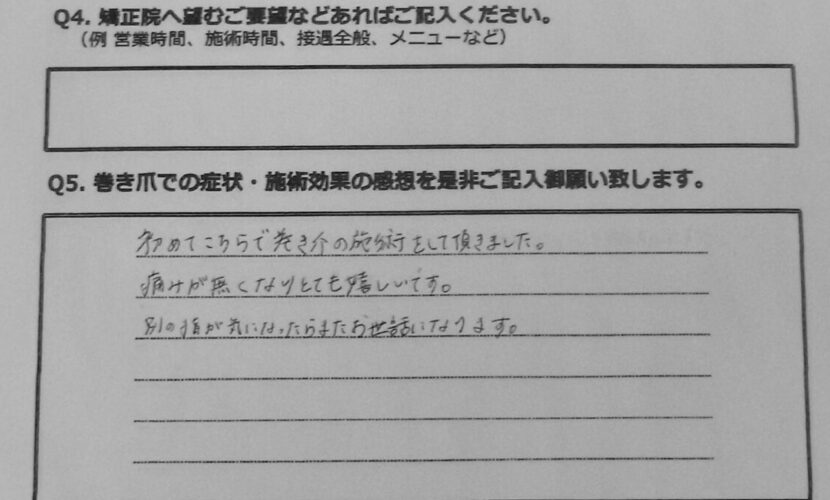 Q4. 矯正院へ望むご要望などあればご記入ください。
（例 営業時間、施術時間、接遇全般、メニューなど）
Q5. 巻き爪での症状・施術効果の感想を是非ご記入御願い致します。
初めてこちらで巻き介の施術をして頂きました。
痛みが無くなりとても嬉しいです。
別の指が気になったらまたお世話になります。